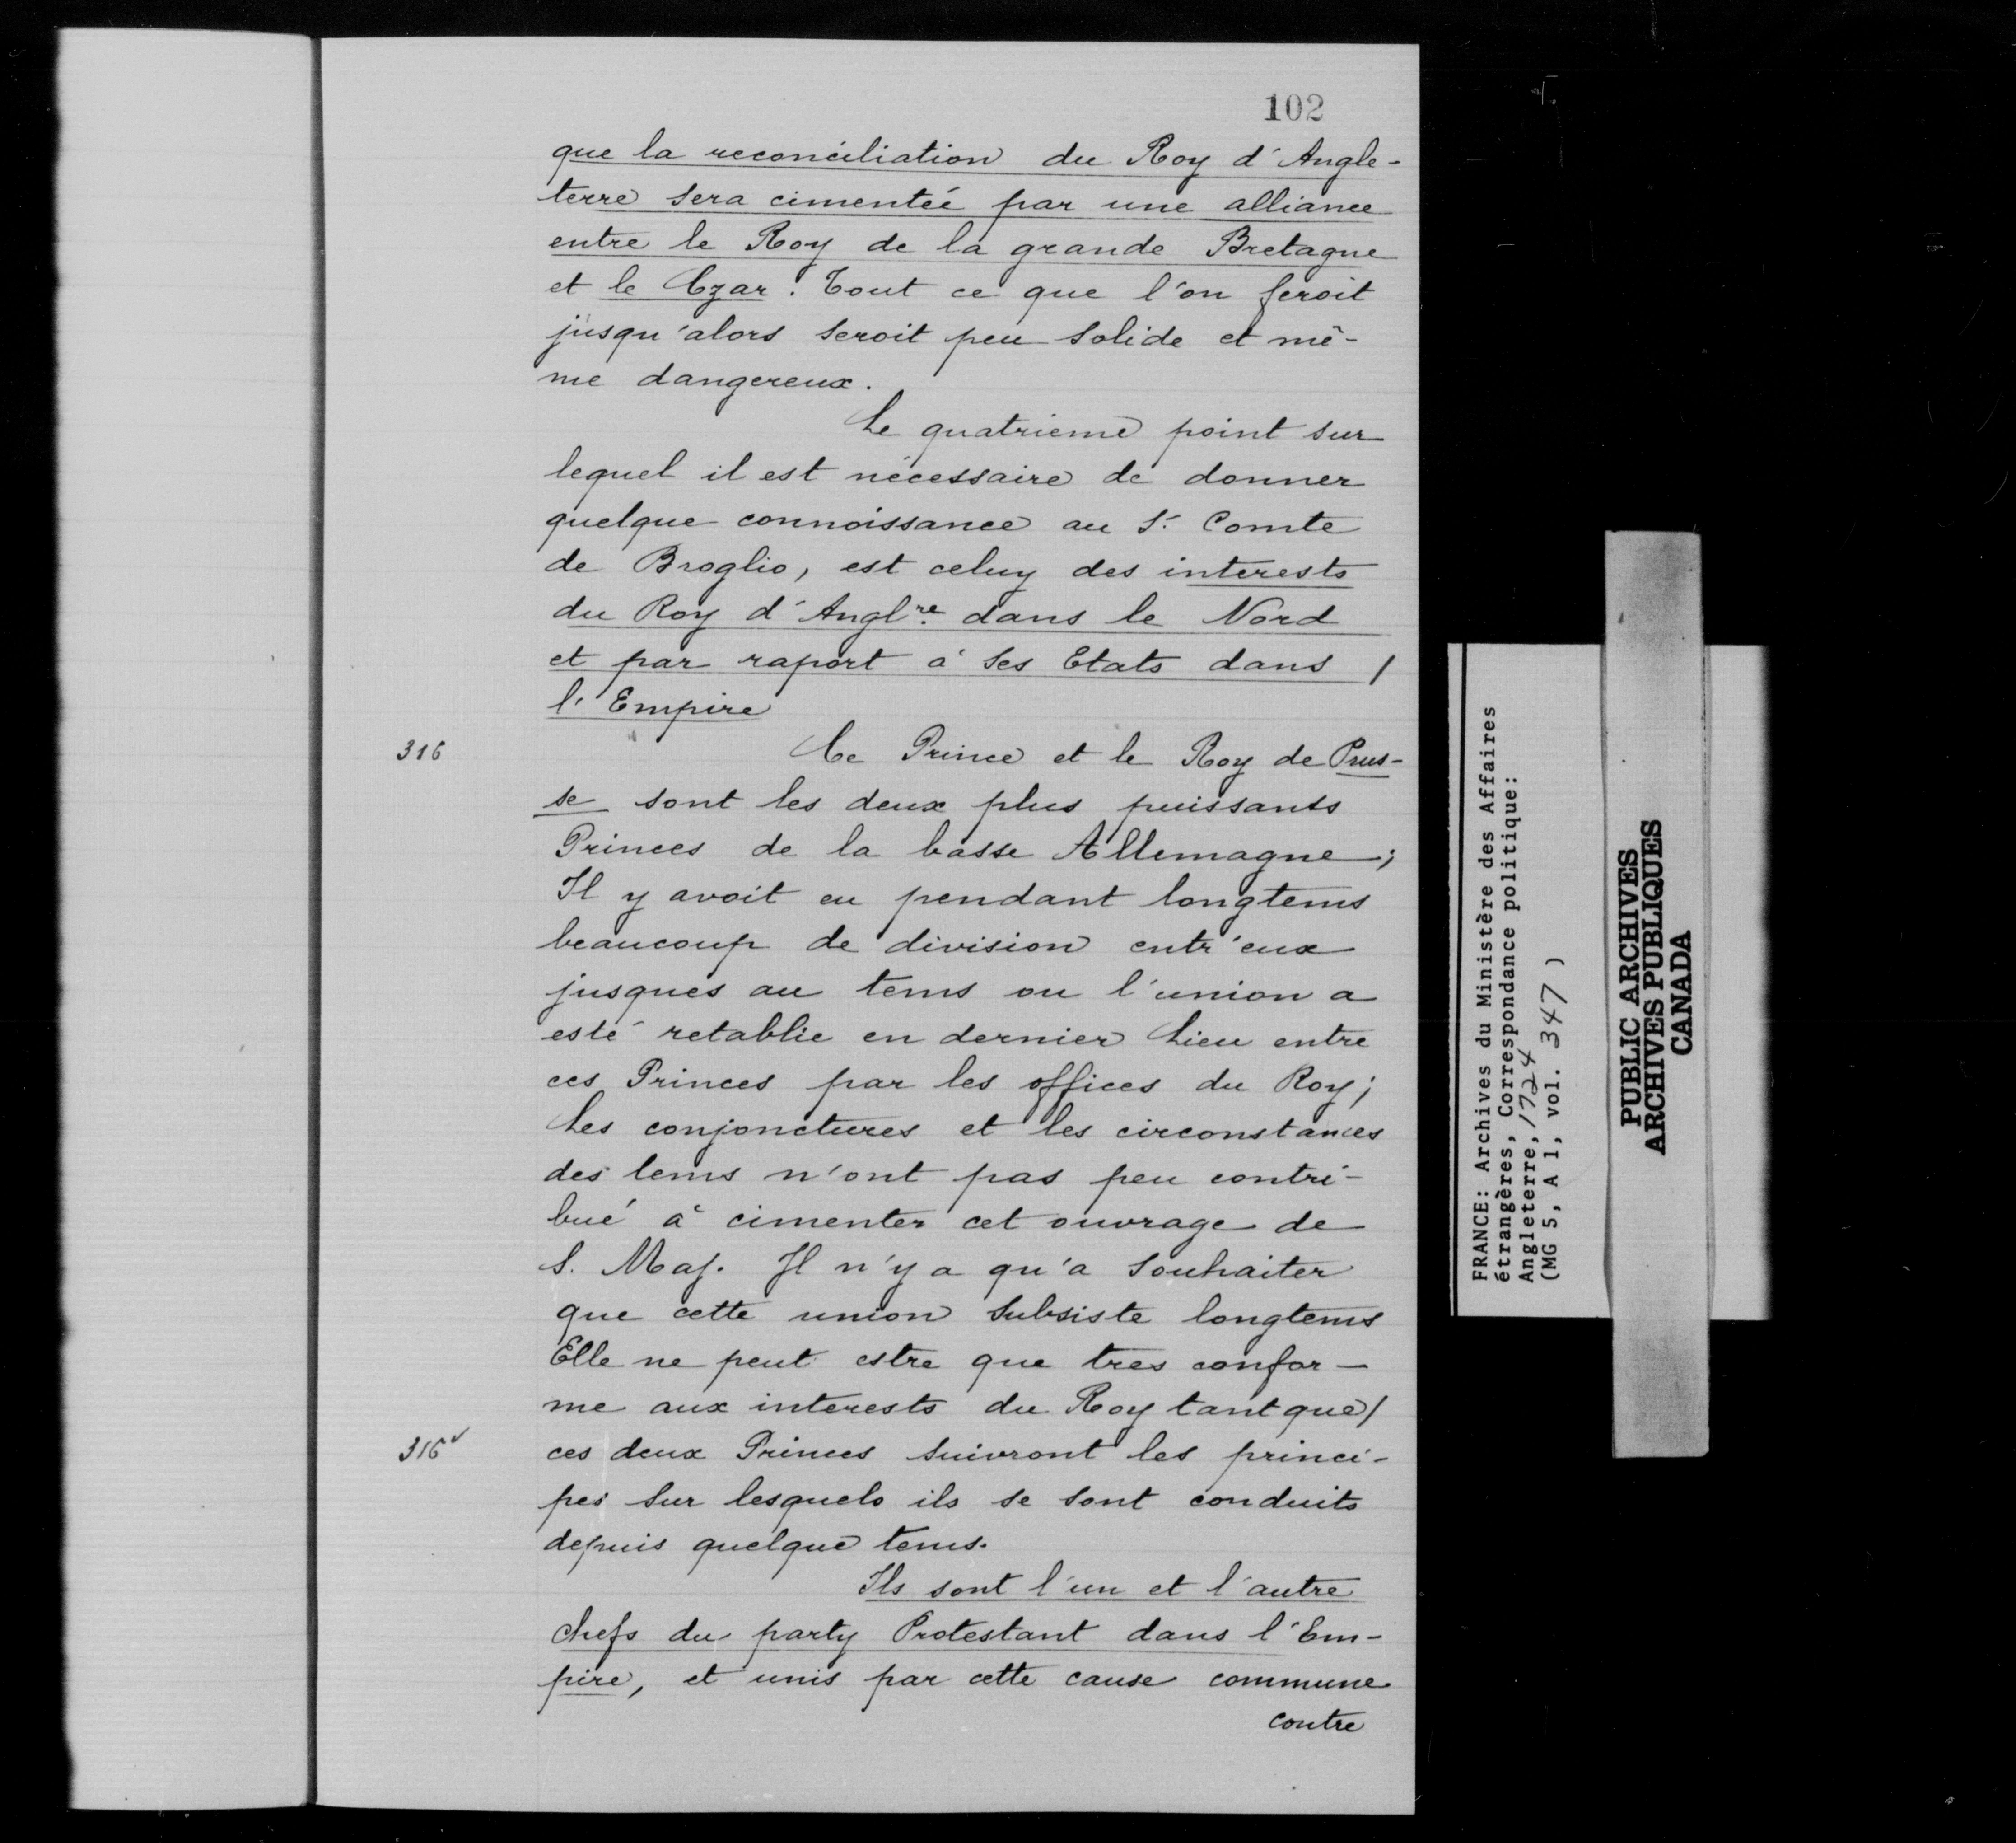 102
que la reconciliation du Roy d'Angle-
terre sera cimentée par une alliance
entre le Roy de la grande Bretagne
et le Czar. Tout ce que l'on feroit
jusqu'alors seroit peu solide et mê-
me dangereux.
Le quatrieme point sur
lequel il est nécessaire de donner
quelque connoissance au S.r Comte
de Broglio, est celuy des interests
du Roy d'Angl.re dans le Nord
et par raport à ses Etats dans /
l'Empire
316
Ce Prince et le Roy de Prus-
se sont les deux plus puissants
Princes de la basse Allemagne;
Il y avoit eu pendant longtems
beaucoup de division entr'eux
jusques au tems ou l'union a
esté retablie en dernier Lieu entre
ces Princes par les offices du Roy;
Les conjonctures et les circonstances
des tems n'ont pas peu contri-
bué à cimenter cet ouvrage de
S. Maj. Il n'y a qu'a souhaiter
que cette union subsiste longtems
Elle ne peut estre que tres confor-
me aux interests du Roy tant que /
316v
ces deux Princes suivront les princi-
pes sur lesquels ils se sont conduits
depuis quelque tems.
Ils sont l'un et l'autre
chefs du party Protestant dans l'Em-
pire, et unis par cette cause commune
contre
FRANCE: Archives du Ministère des Affaires
étrangères, Correspondance politique:
Angleterre, 1724
(MG 5, A 1, vol. 347 )
PUBLIC ARCHIVES
ARCHIVES PUBLIQUES
CANADA